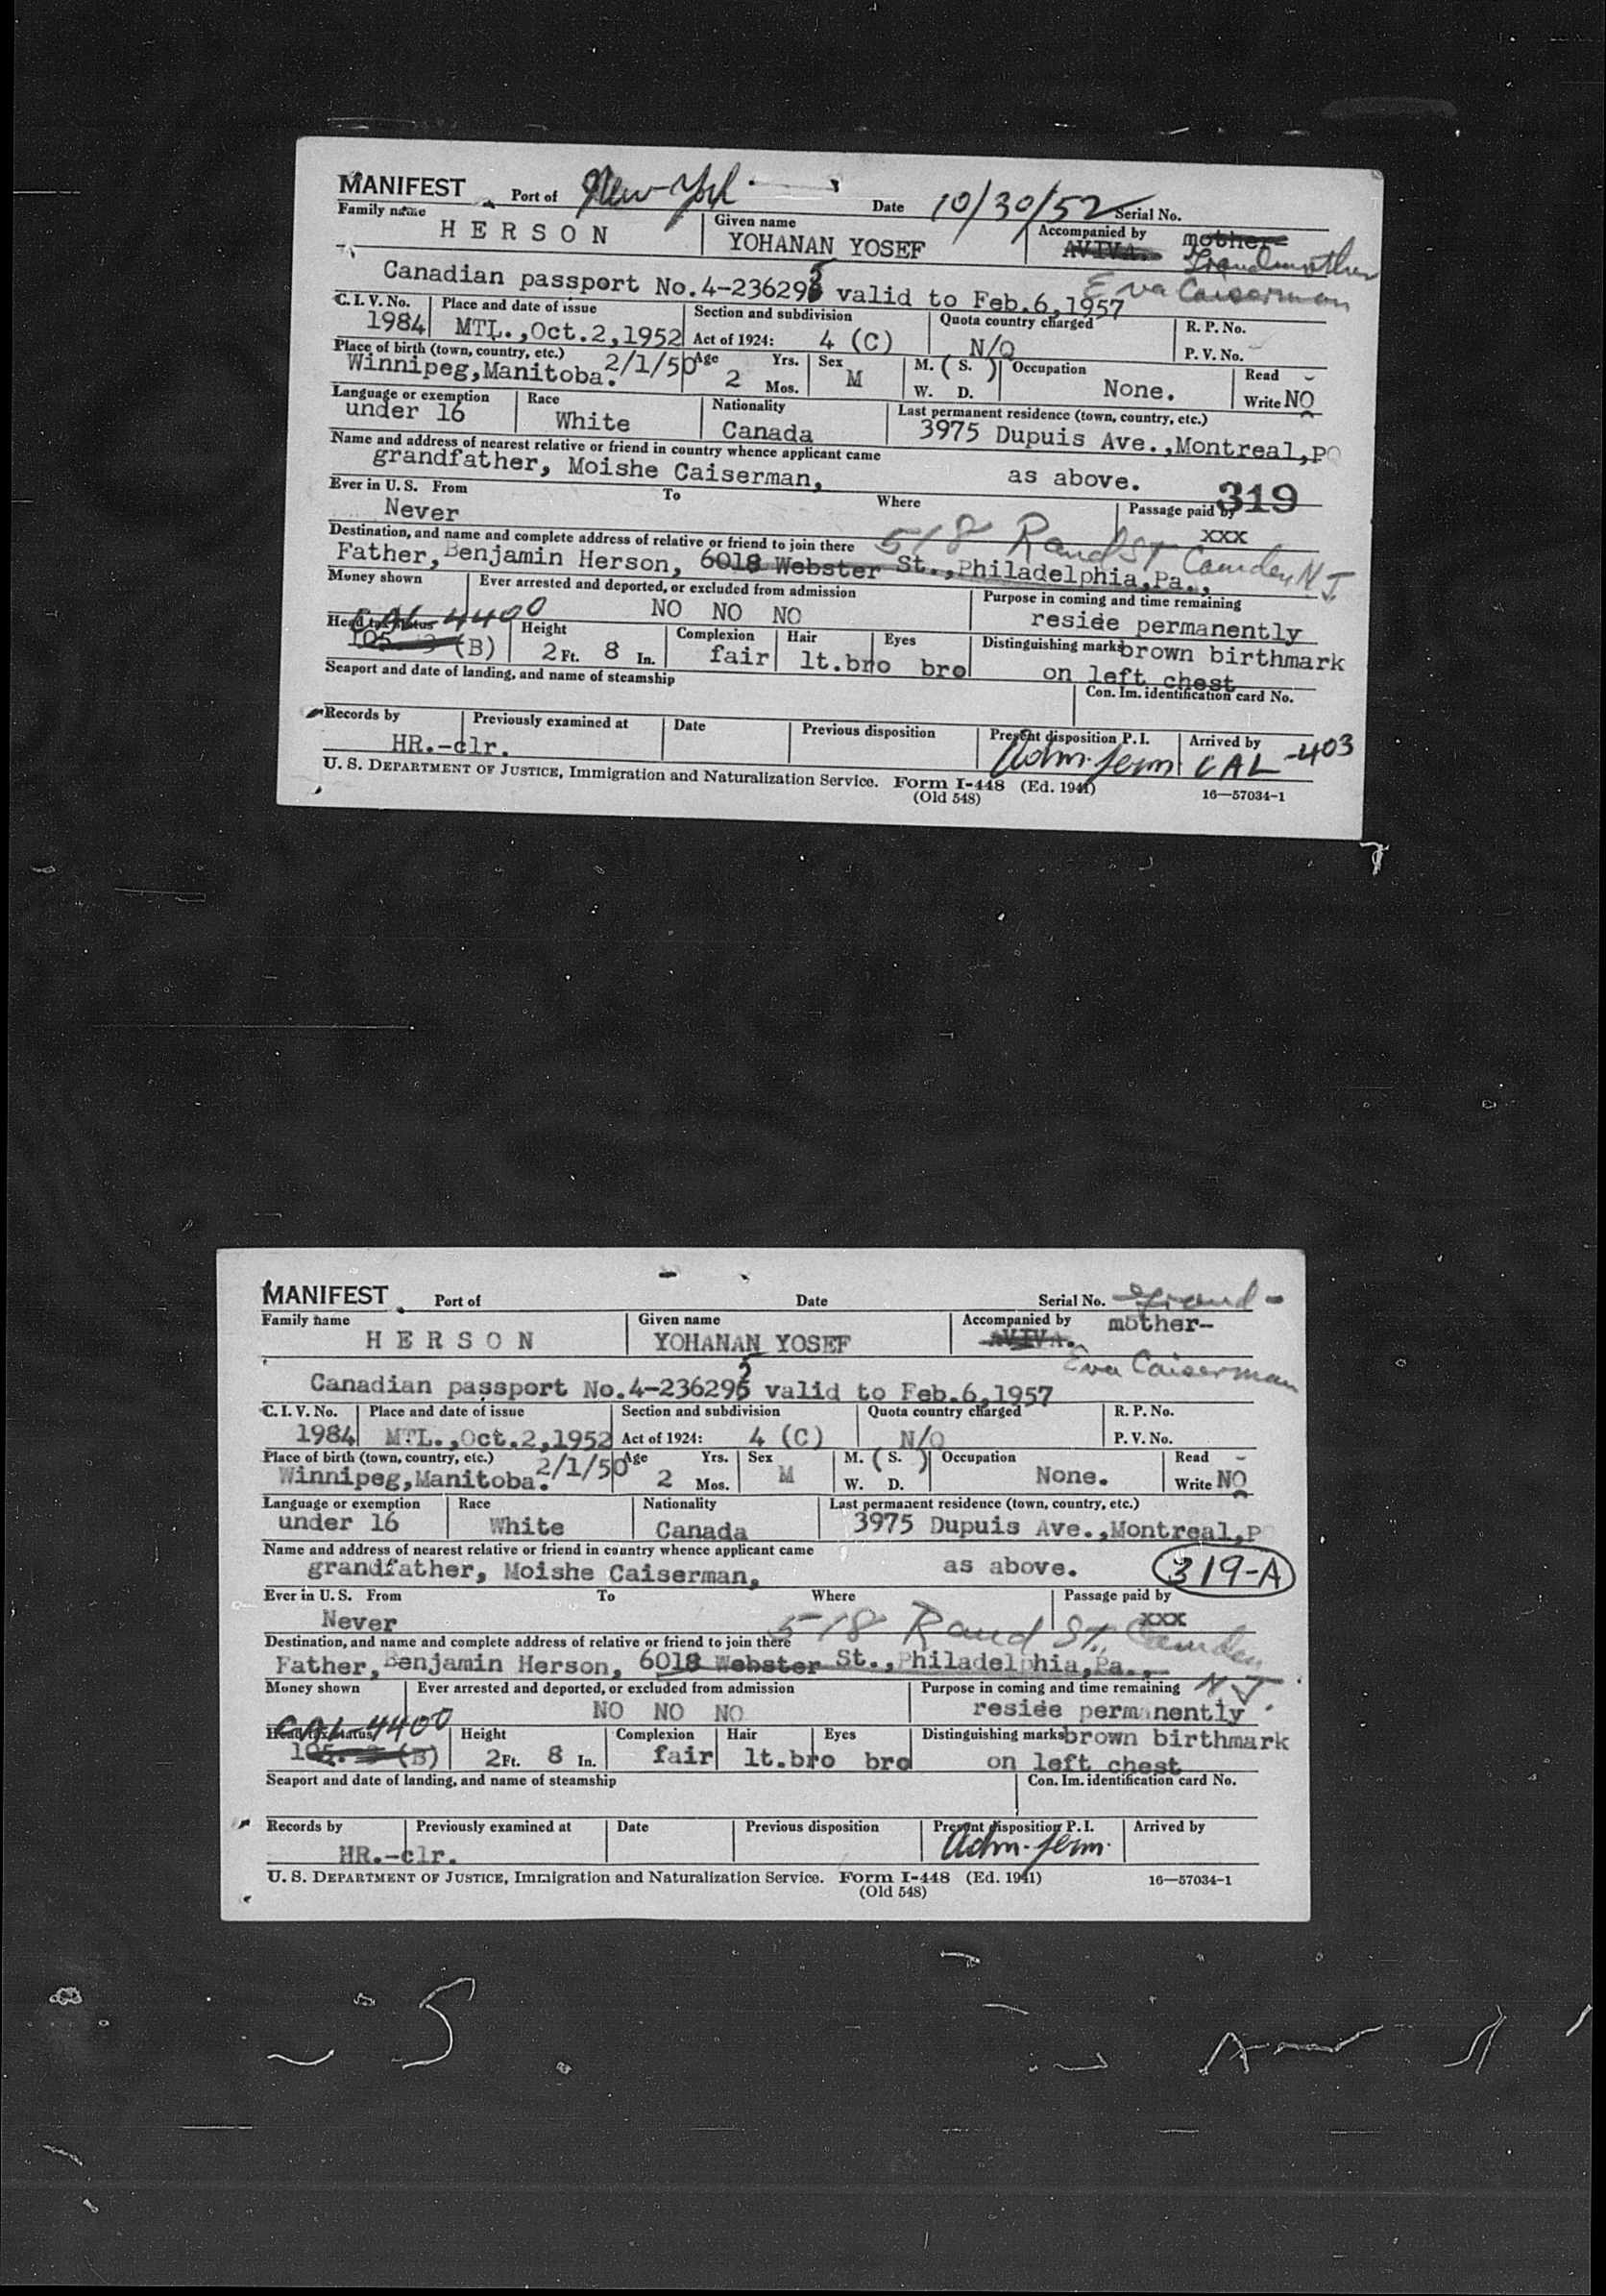 MANIFEST Port of New York Date 10/30/52 Serial No.
Family name Given name Accompanied by mother
HERSON YOHANAN YOSEF AVIVA. Grandmother
Eva Caiserman
Canadian passport No.4-236295 valid to Feb.6,1957
C. I. V. No. Place and date of issue Section and subdivision Quota country charged R. P. No.
1984 MTL.,Oct.2,1952 Act of 1924: 4 (C) N/Q P. V. No.
Place of birth (town, country, etc.) Age Yrs. Sex M. (S.) Occupation Read
Winnipeg,Manitoba. 2/1/50 2 Mos. M W. D. None. Write NO
Language or exemption Race Nationality Last permanent residence (town, country, etc.)
under 16 White Canada 3975 Dupuis Ave.,Montreal,PQ
Name and address of nearest relative or friend in country whence applicant came
grandfather, Moishe Caiserman, as above. 319
Ever in U. S. From To Where Passage paid by
Never xxx
Destination, and name and complete address of relative or friend to join there 518 Rand St Camden N J
Father, Benjamin Herson, 6018 Webster St.,Philadelphia,Pa.,
Money shown Ever arrested and deported, or excluded from admission Purpose in coming and time remaining
CAL-4400 NO NO NO reside permanently
Head tax status Height Complexion Hair Eyes Distinguishing marks brown birthmark
105. 3 (B) 2 Ft. 8 In. fair lt.bro bro on left chest
Seaport and date of landing, and name of steamship Con. Im. identification card No.
Records by Previously examined at Date Previous disposition Present disposition P. I. Arrived by
HR.-clr. Adm. perm CAL -403
U. S. DEPARTMENT OF JUSTICE, Immigration and Naturalization Service. Form I-448 (Ed. 1941) 16—57034-1
(Old 548)
MANIFEST Port of Date Serial No. Grand-
Family name Given name Accompanied by mother-
HERSON YOHANAN YOSEF AVIVA.
Eva Caiserman
Canadian passport No.4-236295 valid to Feb.6,1957
C. I. V. No. Place and date of issue Section and subdivision Quota country charged R. P. No.
1984 MTL.,Oct.2,1952 Act of 1924: 4 (C) N/Q P. V. No.
Place of birth (town, country, etc.) Age Yrs. Sex M. (S.) Occupation Read
Winnipeg,Manitoba. 2/1/50 2 Mos. M W. D. None. Write NO
Language or exemption Race Nationality Last permanent residence (town, country, etc.)
under 16 White Canada 3975 Dupuis Ave.,Montreal,PQ
Name and address of nearest relative or friend in country whence applicant came
grandfather, Moishe Caiserman, as above. 319-A
Ever in U. S. From To Where Passage paid by
Never xxx
Destination, and name and complete address of relative or friend to join there 518 Rand St. Camden
Father, Benjamin Herson, 6018 Webster St.,Philadelphia,Pa., N J.
Money shown Ever arrested and deported, or excluded from admission Purpose in coming and time remaining
CAL-4400 NO NO NO reside permanently
Head tax status Height Complexion Hair Eyes Distinguishing marks brown birthmark
105. 3 (B) 2 Ft. 8 In. fair lt.bro bro on left chest
Seaport and date of landing, and name of steamship Con. Im. identification card No.
Records by Previously examined at Date Previous disposition Present disposition P. I. Arrived by
HR.-clr. Adm. perm.
U. S. DEPARTMENT OF JUSTICE, Immigration and Naturalization Service. Form I-448 (Ed. 1941) 16—57034-1
(Old 548)